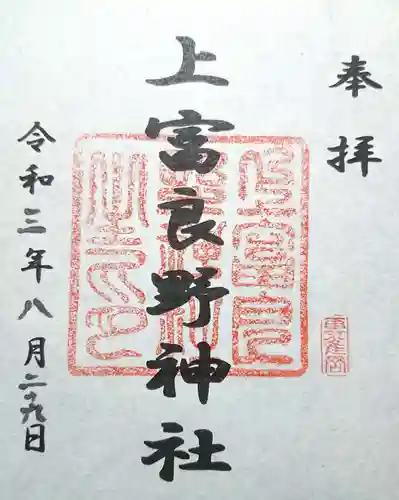 奉拝
上富良野神社
令和三年八月二十九日